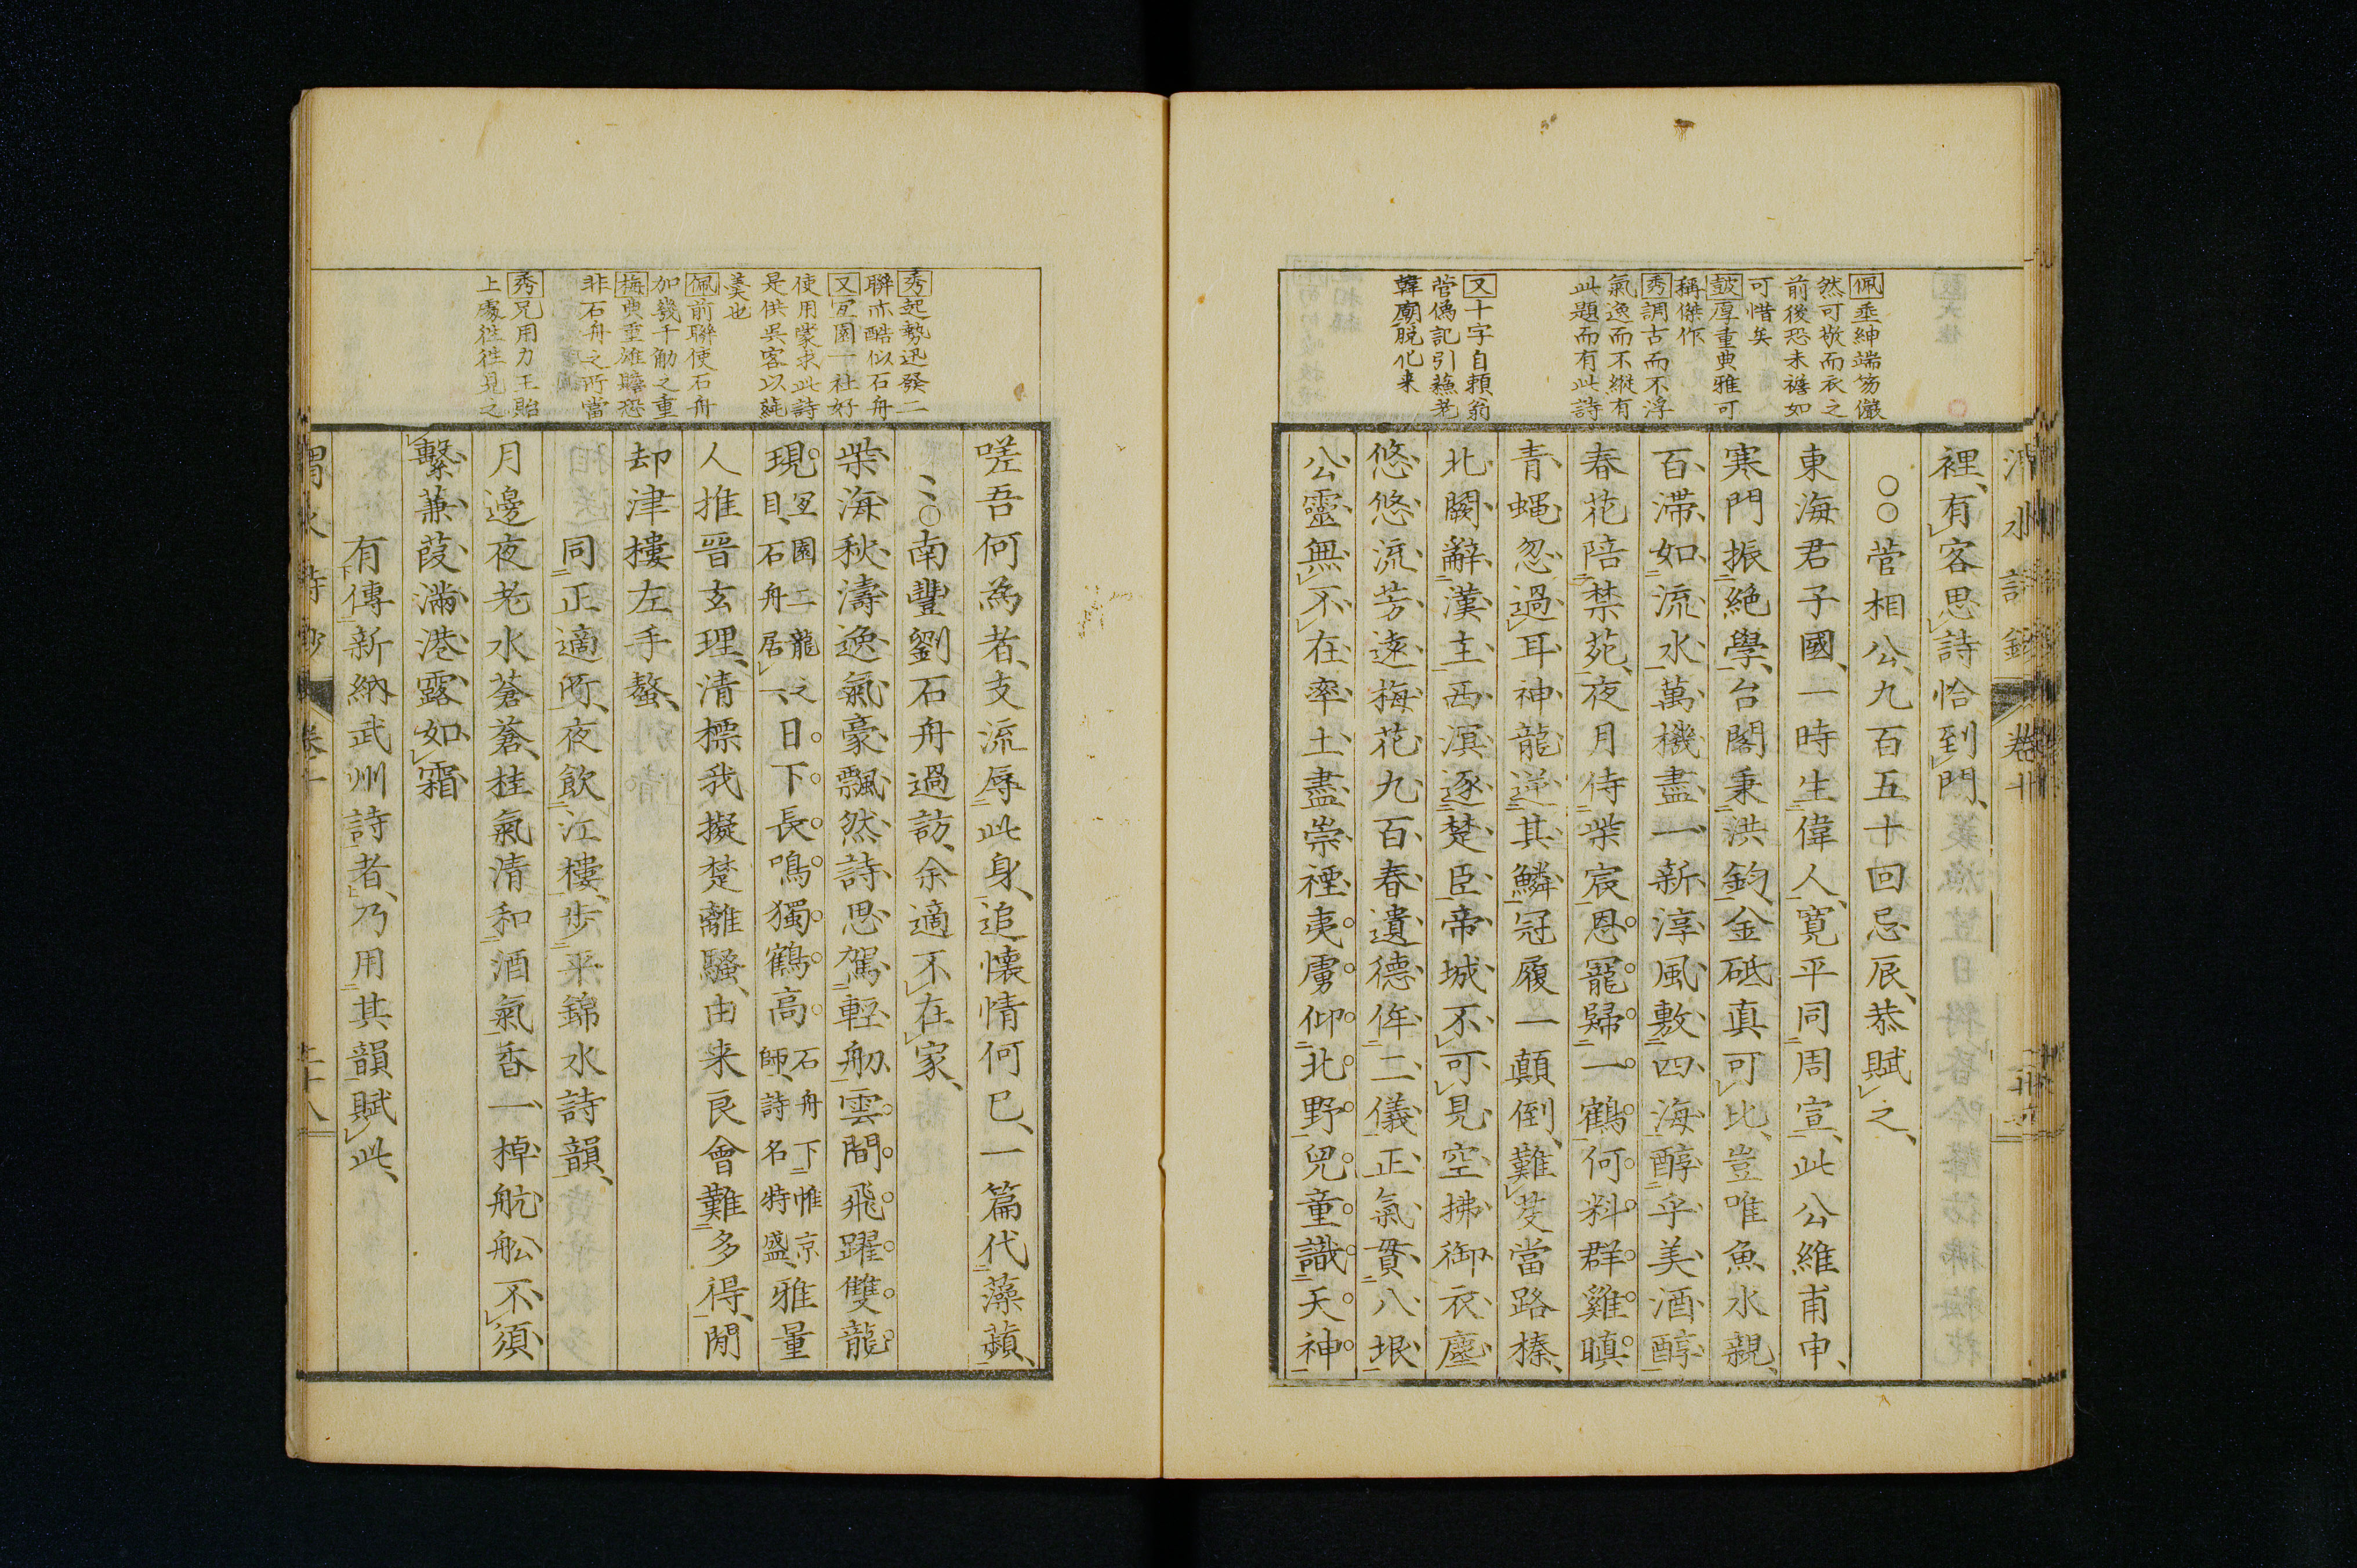 佩垂紳端笏儼
然可敬而衣之
前後恐未襜如
可惜矣
皷厚重典雅可
稱傑作
秀調古而不浮
氣逸而不縱有
此題而有此詩
又十字自頼翁
菅偽記引蘓老
韓廟脱化来
裡、有客思詩恰到門、
○○菅相公九百五十回忌辰、恭賦之、
東海君子國、一時生偉人、寛平同周宣、此公維甫申、
寒門振絶學、台閣秉洪鈞、金砥真可比、豈唯魚水親、
百滞如流水、萬機盡一新、淳風敷四海、醇乎美酒醇
春花陪禁苑、夜月侍紫宸、恩寵歸一鶴、何料群雞瞋
青蝿忽過耳、神龍逆其鱗、冠履一顛倒、難芟當路榛、
北闕辭漢主、西溟逐楚臣、帝城不可見、空拂御衣塵
悠悠流芳遠、梅花九百春、遺德侔二儀、正氣貫八垠
公靈無不在、率土盡崇禋、夷虜仰北野、兒童識天神
秀起勢迅發二
聯亦酷似石舟
又冝園一社好
使用蒙求此詩
是供呉客以純
羹也
佩前聯使石舟
加幾千觔之重
梅典重雄贍恐
非石舟之所當
秀兄用力王貽
上處徃徃見之
嗟吾何為者、支流辱此身、追懐情何已、一篇代藻蘋、
、、○南豐劉石舟過訪、余適不在家、
柴海秋濤逸氣豪、飄然詩思駕輕舠、雲間飛躍雙龍
現、冝園二龍之目、石舟居一、日下長鳴獨鶴高、石舟下帷京師、詩名特盛、雅量
人推晋玄理、清標我擬楚離騷、由来良會難多得、閒
却津樓左手螯、
同正適所、夜飲江樓、歩来錦水詩韻、
月邊夜老水蒼蒼、桂氣清和酒氣香、一棹航舩不須
繫、蒹葭滿港露如霜
有傳新納武州詩者、乃用其韻賦此、